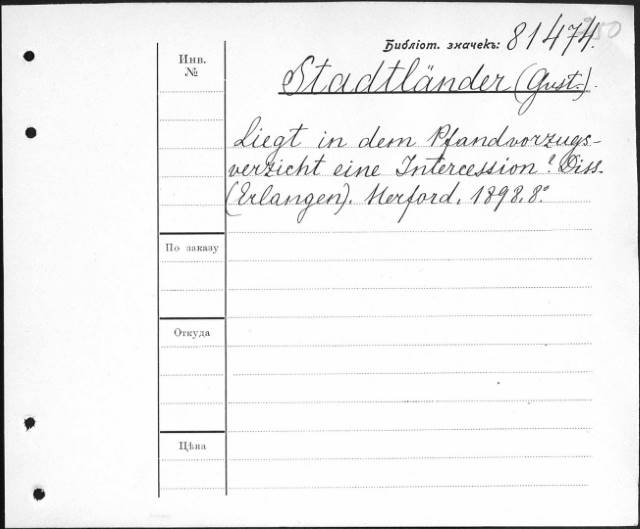 Библіот. значекъ: 81474.
Инв.
№
Stadtländer (Gust.).
Liegt in dem Pfandvorzugs-
verzicht eine Intercession? Diss.
(Erlangen). Herford. 1898. 8°
По заказу
Откуда
Цѣна